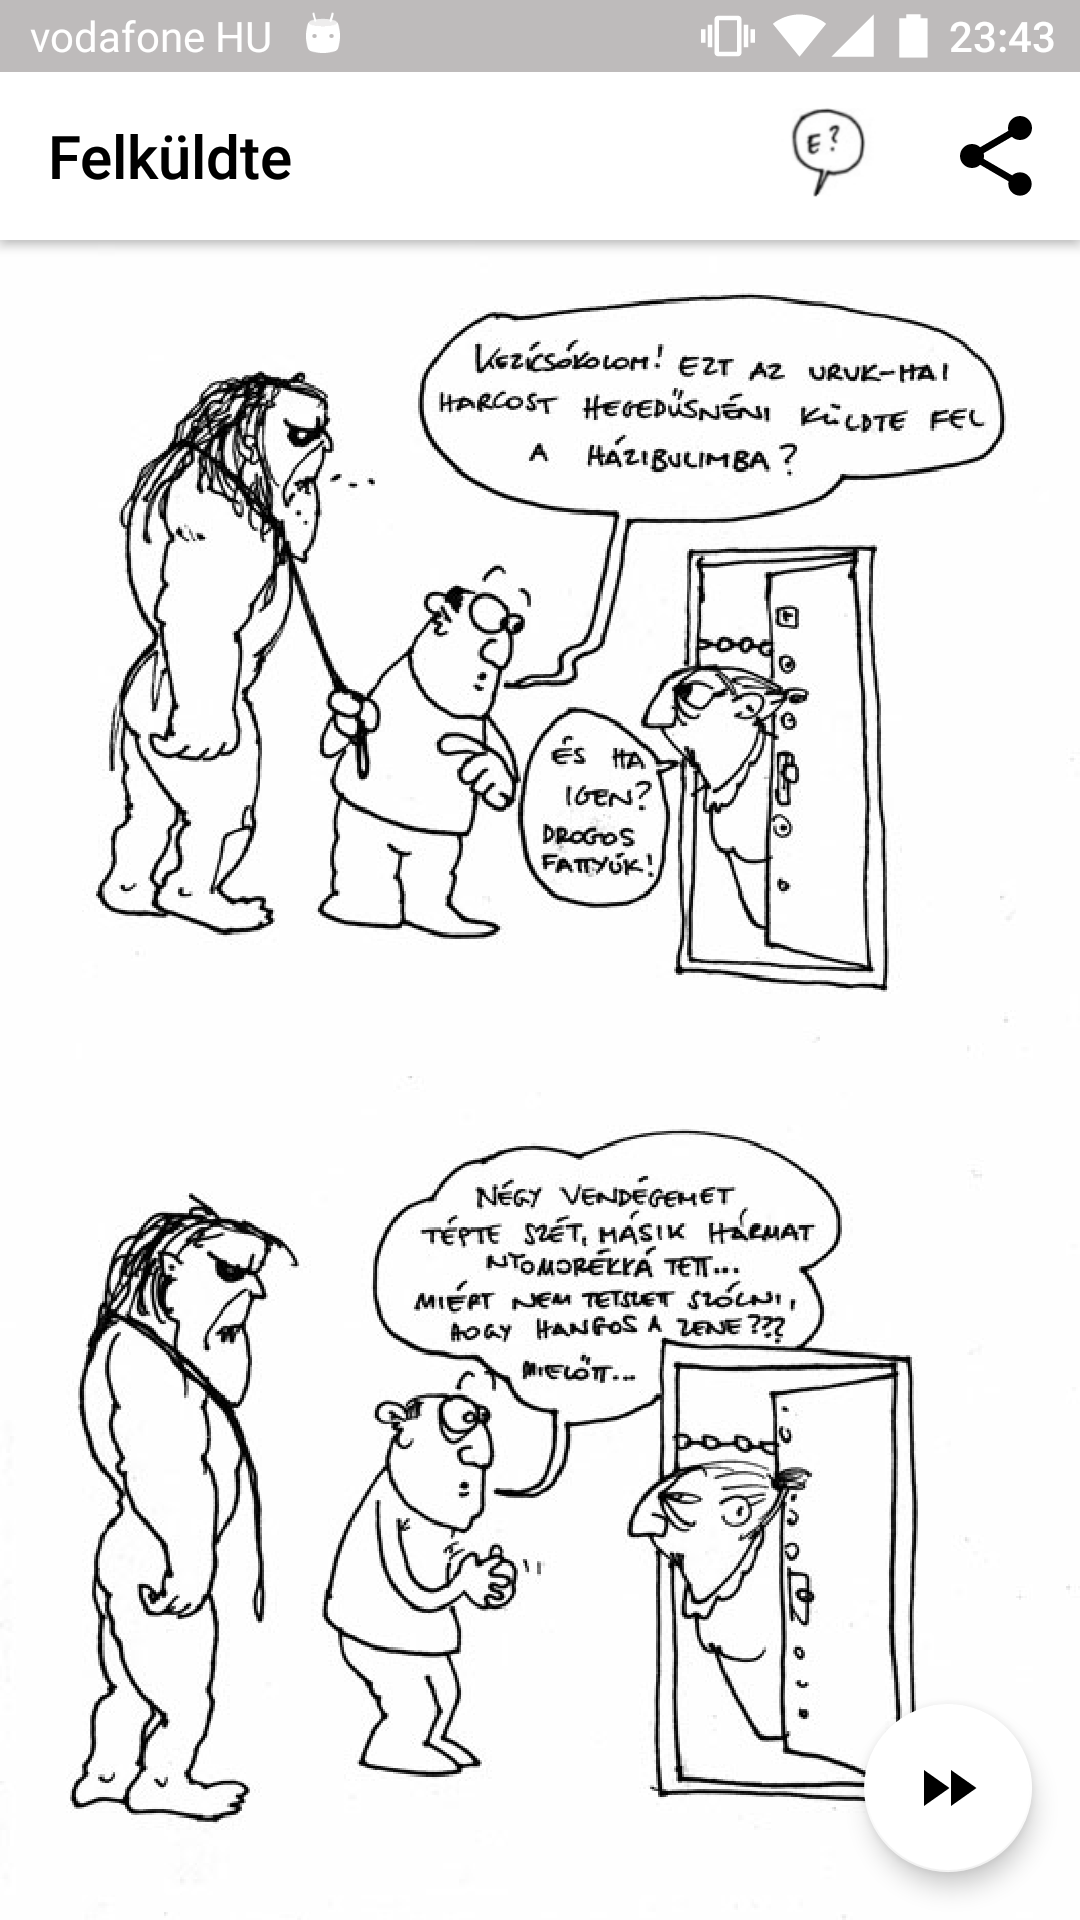 vodafone HU
23:43
Felküldte
E?
KEZICSÓKOLOM! EZT AZ URUK-HAI
HARCOST HEGEDŰSNÉNI KÜLDTE FEL
A HÁZIBULIMBA?
ÉS HA
IGEN?
DROGOS
FATTYÚK!
NÉGY VENDÉGEMET
TÉPTE SZÉT, MÁSIK HÁRMAT
NYOMORÉKKÁ TETT...
MIÉRT NEM TETSZET SZÓLNI,
HOGY HANGOS A ZENE???
MIELŐTT...